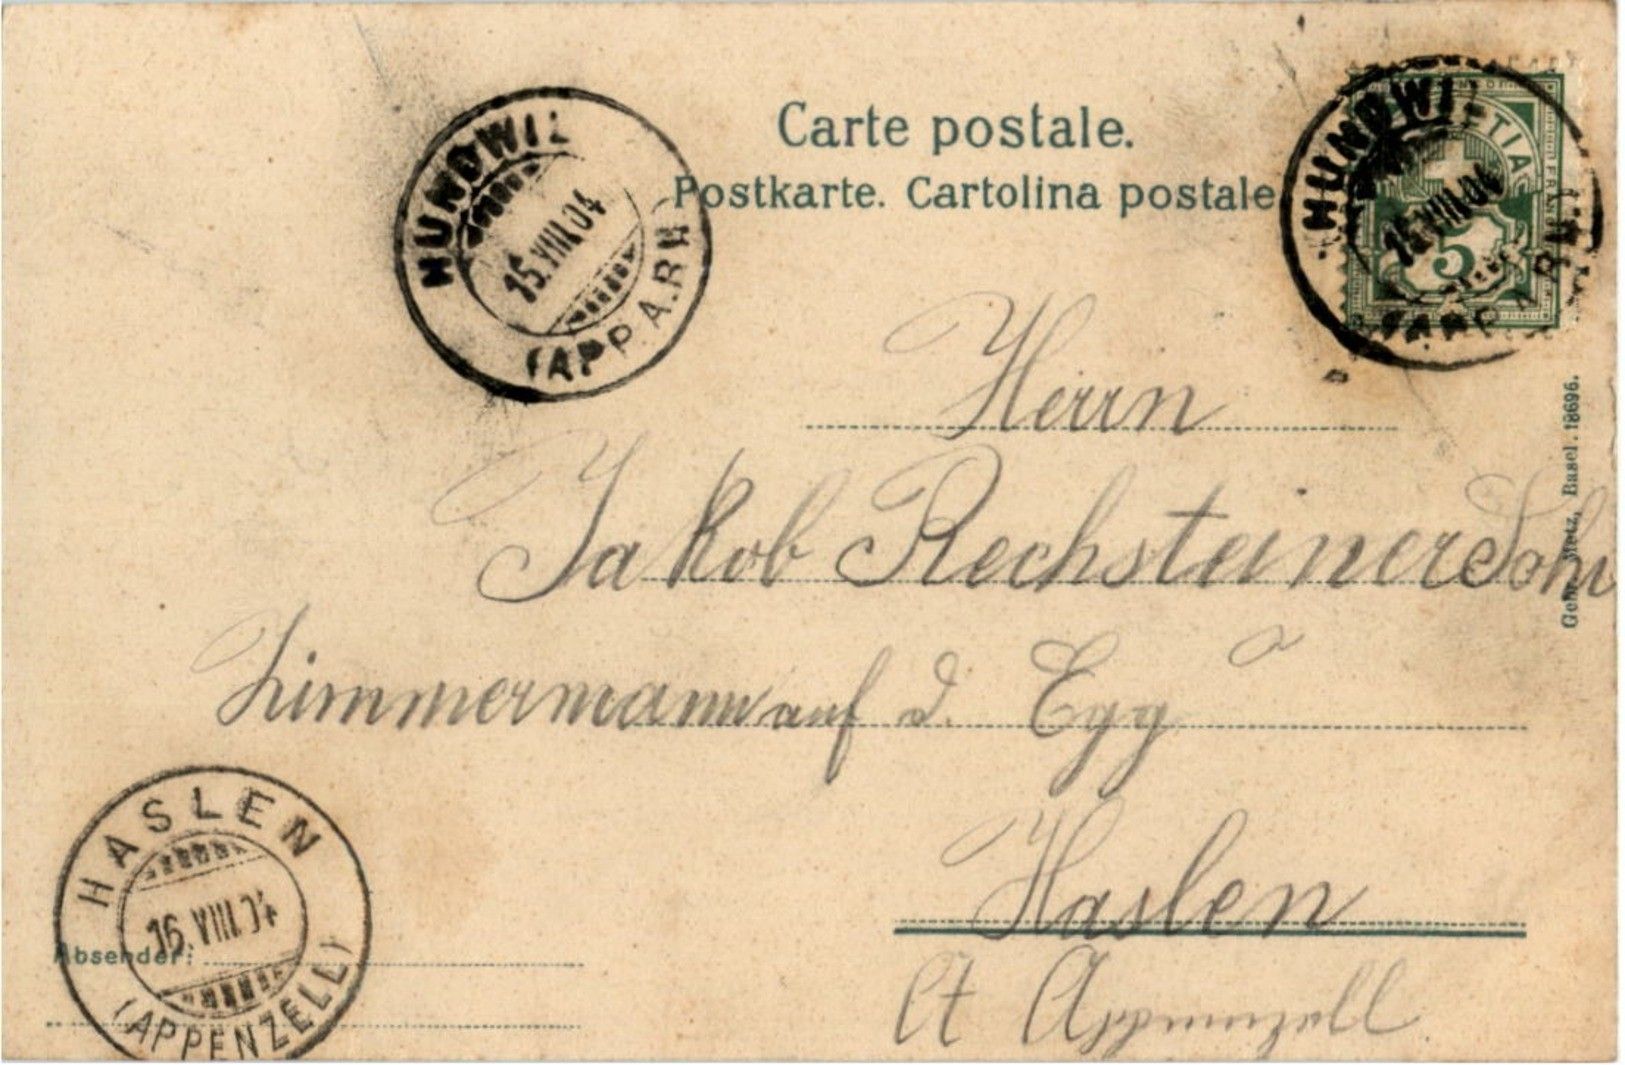 Carte postale.
Postkarte. Cartolina postale
HUNDWIL
15.VIII.04
(APP. A.RH.)
HUNDWIL
15.VIII.04
(APP. A.RH.)
HELVETIA
FRANCO
5
Herrn
Jakob Rechsteiner Sohn
Zimmermann auf d. Egg
Haslen
Ct Appenzell
HASLEN
16.VIII.04
(APPENZELL)
Absender:
Gebr. Metz, Basel. 18696.